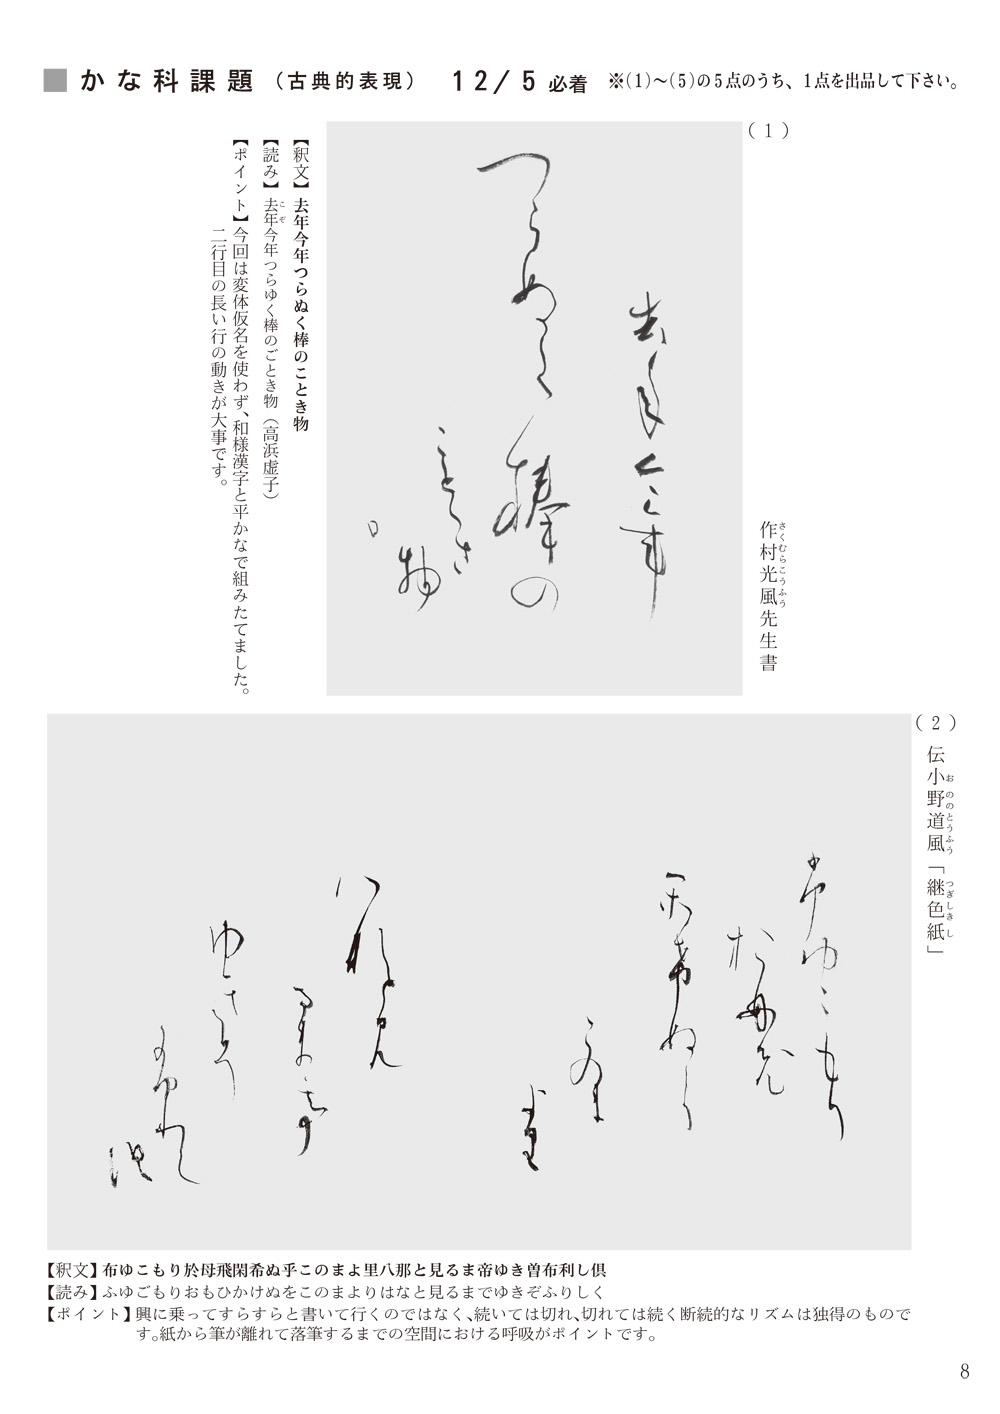 ■かな科課題（古典的表現） 12/5必着 ※(1)～(5)の5点のうち、1点を出品して下さい。
(1)
作村光風先生書
さくむらこうふう
去年今年
つらぬく棒の
ことき
物
【釈文】去年今年つらぬく棒のことき物
【読み】去年今年つらゆく棒のごとき物（高浜虚子）
こぞ
【ポイント】今回は変体仮名を使わず、和様漢字と平かなで組みたてました。
二行目の長い行の動きが大事です。
(2)
伝小野道風「継色紙」
おののとうふう つぎしきし
布ゆこもり
於母飛
閑希ぬ乎
このま
よ里
八那と見
るま帝
ゆき曽
布利し
倶
【釈文】布ゆこもり於母飛閑希ぬ乎このまよ里八那と見るま帝ゆき曽布利し倶
【読み】ふゆごもりおもひかけぬをこのまよりはなと見るまでゆきぞふりしく
【ポイント】興に乗ってすらすらと書いて行くのではなく、続いては切れ、切れては続く断続的なリズムは独得のもので
す。紙から筆が離れて落筆するまでの空間における呼吸がポイントです。
8